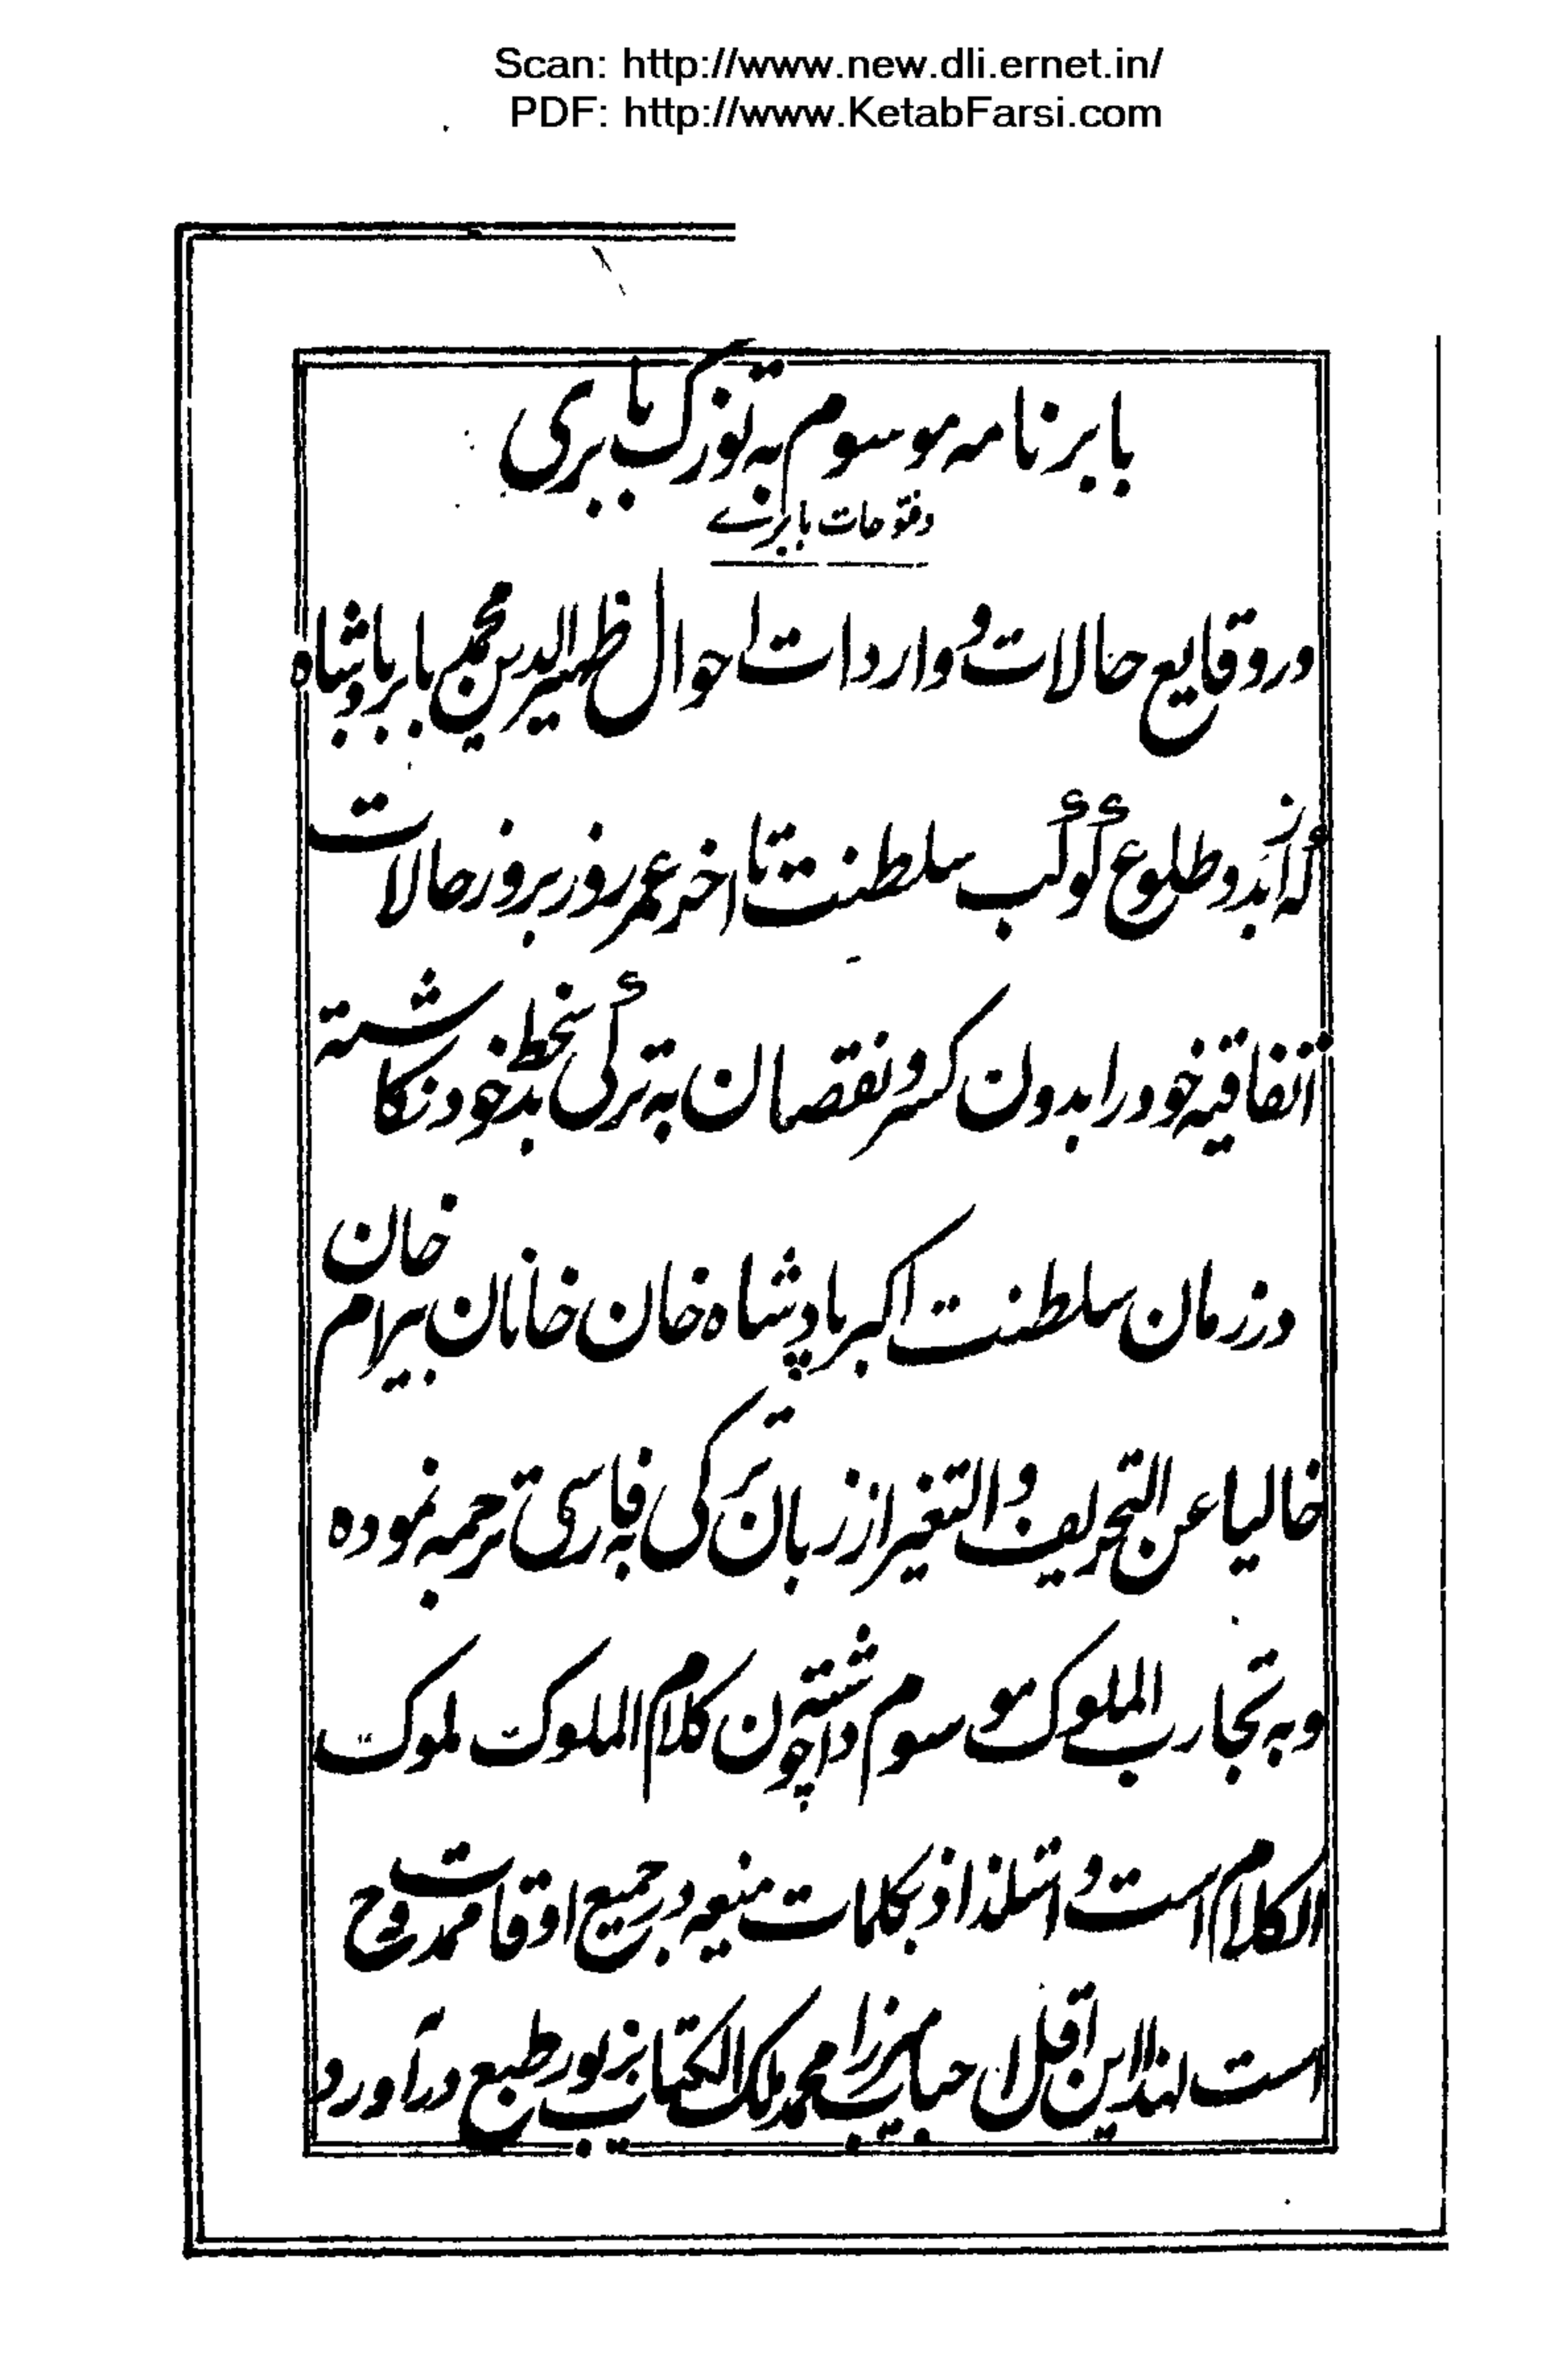 Scan: http://www.new.dli.ernet.in/
PDF: http://www.KetabFarsi.com
بابرنامه موسوم به توزک بابری
و فتوحات بابری
در وقایع حالات و واردات احوال ظهیرالدین محمد بابر بادشاه
که از بدو طلوع کوکب سلطنت تا اخر عمر روز بروز حالات
اتفاقیه خود را بدون کسر و نقصان به ترکی بخط خود نکاشته
در زمان سلطنت اکبر پادشاه خان خانان بیرام خان
خالیا عن التحریف و التغیر از زبان ترکی به فارسی ترجمه نموده
و به تجارب الملوک موسوم داشته چون کلام الملوک ملوک
الکلام است و استلذاذ بکلمات منیعه در جمیع اوقات ممدوح
است لهذا این اقل احباب میرزا محمد ملک الکتاب بزیور طبع درآورد